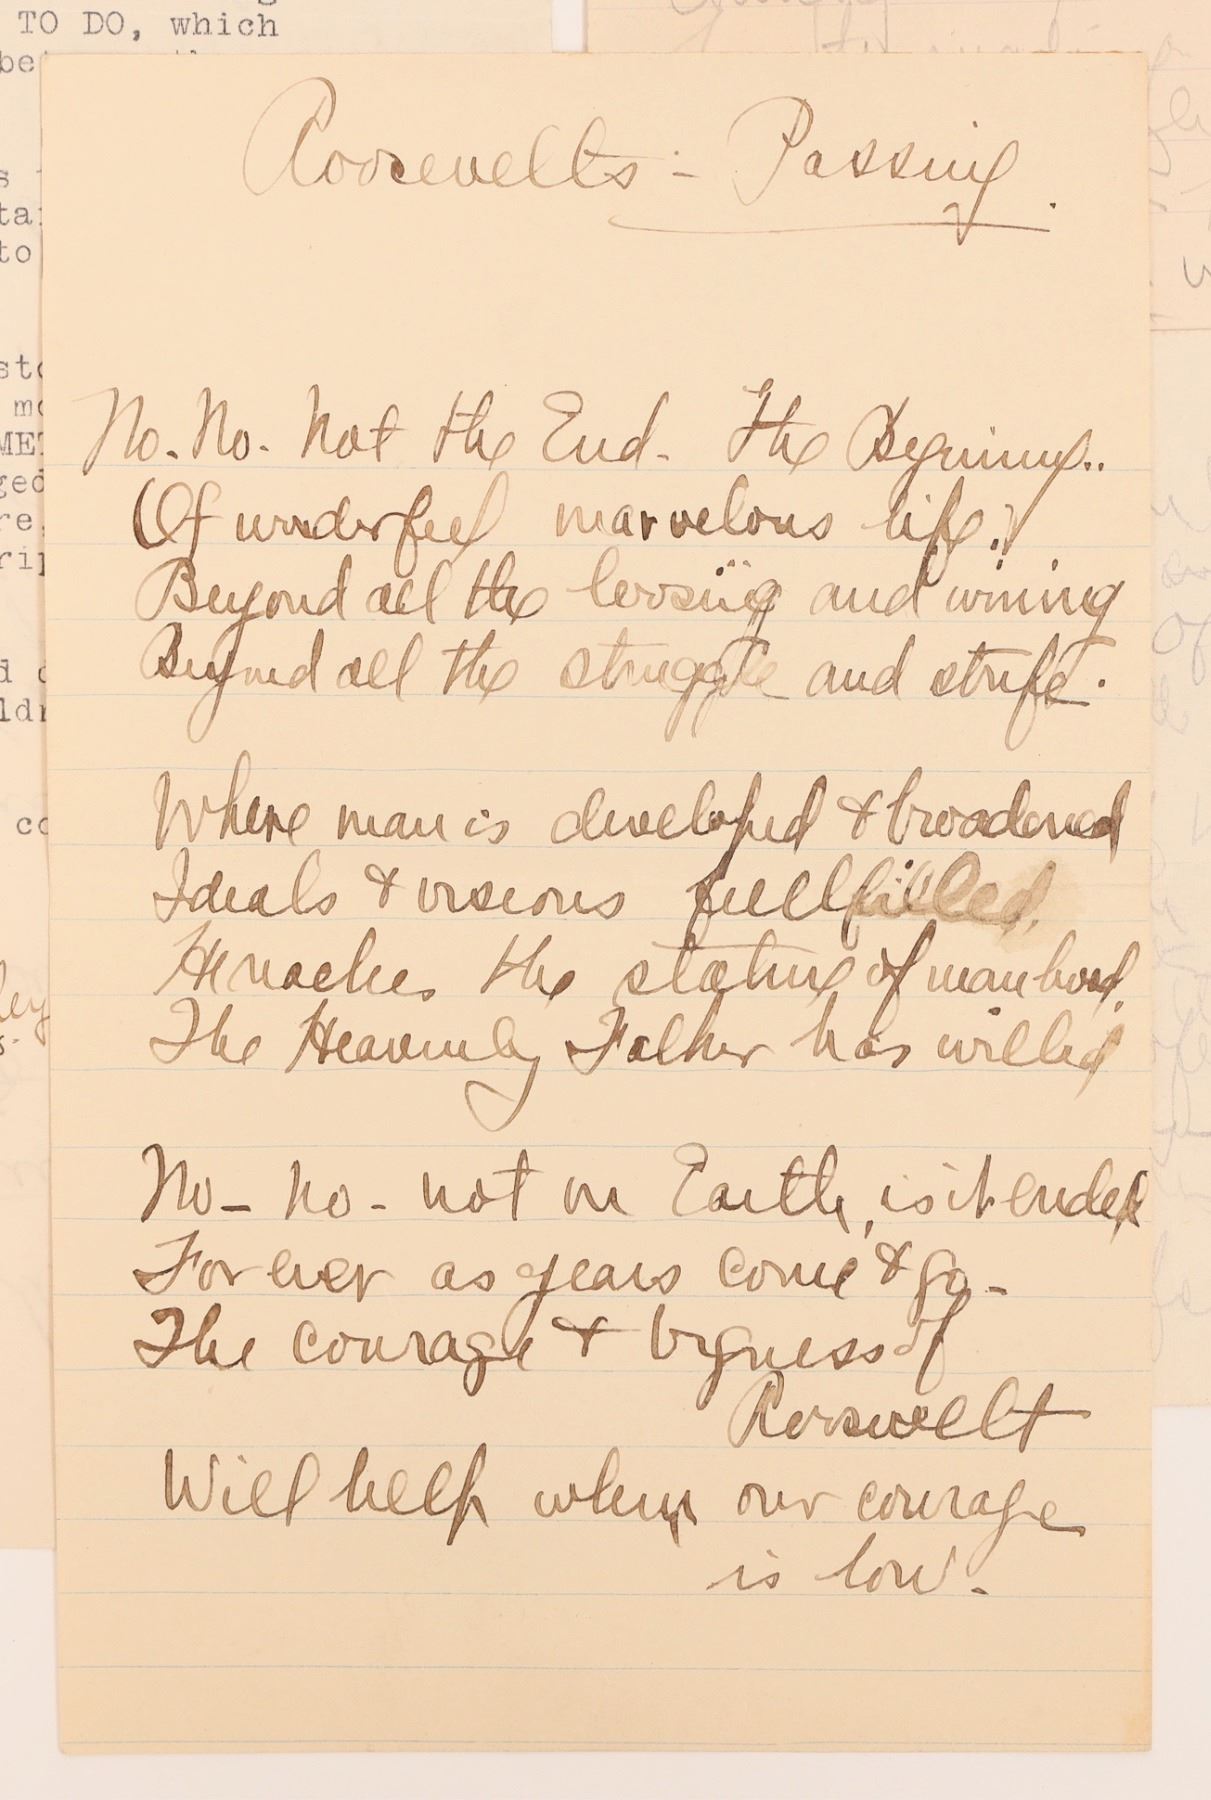 TO DO, which
Roosevelts - Passing.
No. No. Not the End. The Begining..
Of wonderfull marvelous life.
Beyond all the loosiing and wining
Beyond all the struggle and strife.
Where man is developed & broadened
Ideals & visions fullfilled.
He reaches the stature of manhood.
The Heavenly Father has willed
No - no - not on Earth, is it ended
For ever as years come & go -
The courage & bigness of
Roosevelt
Will help when our courage
is low.